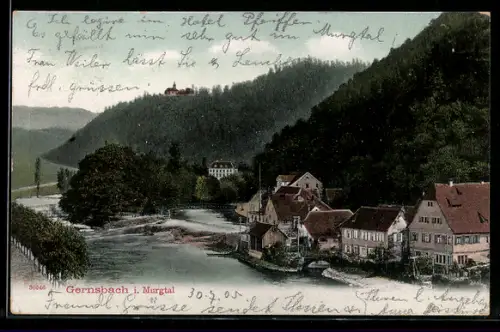 Ich logire im Hotel Pfeiffer
Es gefällt mir sehr gut im Murgtal
Frau Weiler lässt Sie
frdl. grüssen
30946
Gernsbach i. Murgtal
30.7.05
Freundl. Grüsse sendet Ihnen
Ihnen u. Angehör